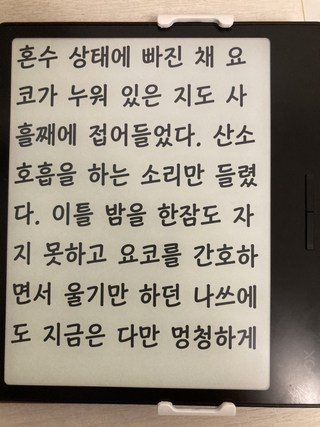 혼수 상태에 빠진 채 요
코가 누워 있은 지도 사
흘째에 접어들었다. 산소
호흡을 하는 소리만 들렸
다. 이틀 밤을 한잠도 자
지 못하고 요코를 간호하
면서 울기만 하던 나쓰에
도 지금은 다만 멍청하게